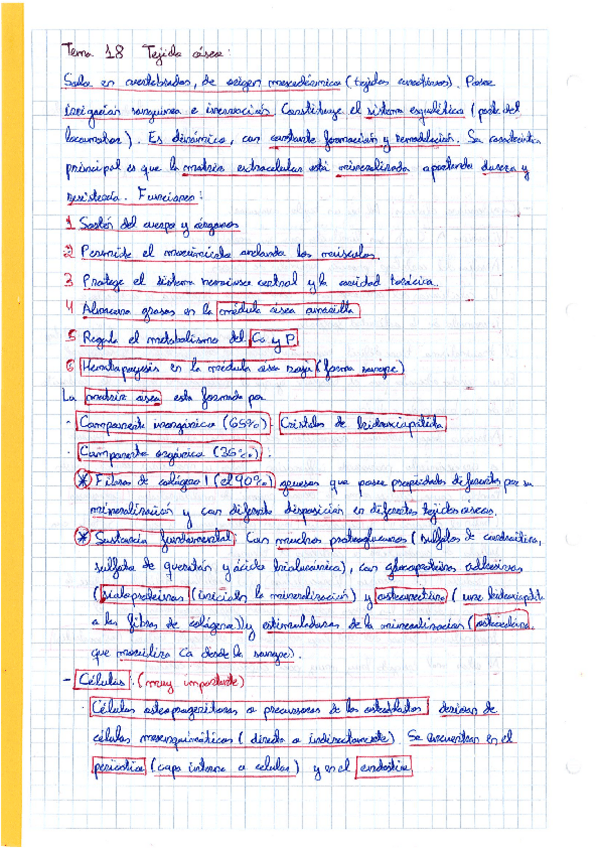 Tema 18 Tejido óseo:
Solo en vertebrados, de origen mesodérmico (tejidos conectivos). Posee
irrigación sanguínea e inervación. Constituye el sistema esquelético (parte del
locomotor). Es dinámico, con constante formación y remodelación. Su característica
principal es que la matriz extracelular está mineralizada aportando dureza y
resistencia. Funciones:
1 Sostén del cuerpo y órganos
2 Permite el movimiento anclando los músculos.
3 Protege el sistema nervioso central y la cavidad torácica.
4 Almacena grasas en la médula ósea amarilla
5 Regula el metabolismo del Ca y P
6 Hematopoyesis en la médula ósea roja (forma sangre)
La matriz ósea esta formada por
- Componente inorgánico (65%). Cristales de hidroxiapatita
- Componente orgánico (35%).
* Fibras de colágeno I (el 90%) gruesas que posee propiedades diferentes por su
mineralización y con diferente disposición en diferentes tejidos óseos.
* Sustancia fundamental: Con muchos proteoglucanos (sulfatos de condroitina,
sulfato de queratán y ácido hialurónico), con glucoproteínas adhesivas
(sialoproteínas (inician la mineralización) y osteonectina (une hidroxiapatita
a las fibras de colágeno)) y estimuladoras de la mineralización (osteocalcina,
que moviliza Ca desde la sangre).
- Células: (muy importante)
· Células osteoprogenitoras o precursoras de los osteoblastos derivan de
células mesenquimáticas (directa o indirectamente). Se encuentran en el
periostio (capa interna o celular) y en el endostio